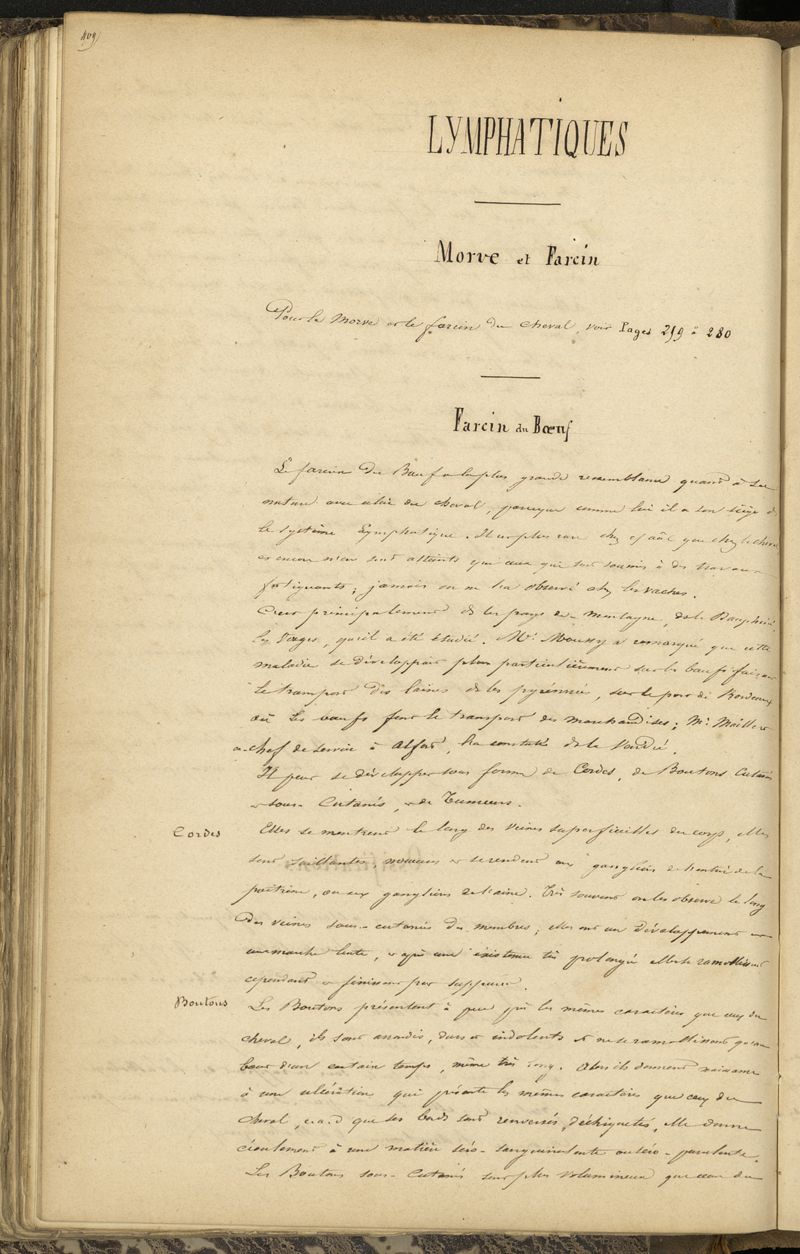 409
LYMPHATIQUES
Morve et Farcin
Pour la Morve et le farcin du cheval, voir Pages 219 à 280
Farcin du Bœuf
Le farcin du Bœuf a la plus grande ressemblance quant à sa
nature avec celui du cheval, parceque comme lui il a son siège ds
le système Lymphatique. Il est plus rare chez et que chez le cheval
et encore n'en sont atteints que ceux qui sont soumis à des travaux
fatiguants; jamais on ne l'a observé chez les vaches.
C'est principalement ds les pays de montagne, ds le Dauphiné
les Vosges, qu'il a été étudié. Mr Moussy a remarqué que cette
maladie se développait plus particulièrement sur les bœufs faisant
le transport des laines ds les pyrénnées, sur le port de Bordeaux
où les bœufs font le transport des marchandises; Mr Maillet
chef de service à Alfort, l'a constaté ds la Vendée.
Il peut se développer sous forme de Cordes, de Boutons Cutanés
et sous-Cutanés, et de Tumeurs.
Cordes Elles se montrent le long des veines superficielles du corps, elles
sont saillantes, noueuses et se rendent aux ganglions de l'entrée de la
poitrine, ou aux ganglions de l'aine. Très souvent on les observe le long
des veines sous-cutanées des membres; elles ont un développement et
une marche lente, et après une existence très prolongée elles se ramollissent
cependant et finissent par suppurer.
Boutons Les Boutons présentent à peu près les mêmes caractères que ceux du
cheval, ils sont arrondis, durs et indolents et ne se ramollissent qu'au
bout d'un certain temps, même très long. Alors ils donnent naissance
à une ulcération qui présente les mêmes caractères que ceux du
cheval, c.a.d que ses bords sont renversés, déchiquetés, elle donne
écoulement à une matière séro-sanguinolente ou séro-purulente.
Les Boutons sous-Cutanés sont plus volumineux que ceux du